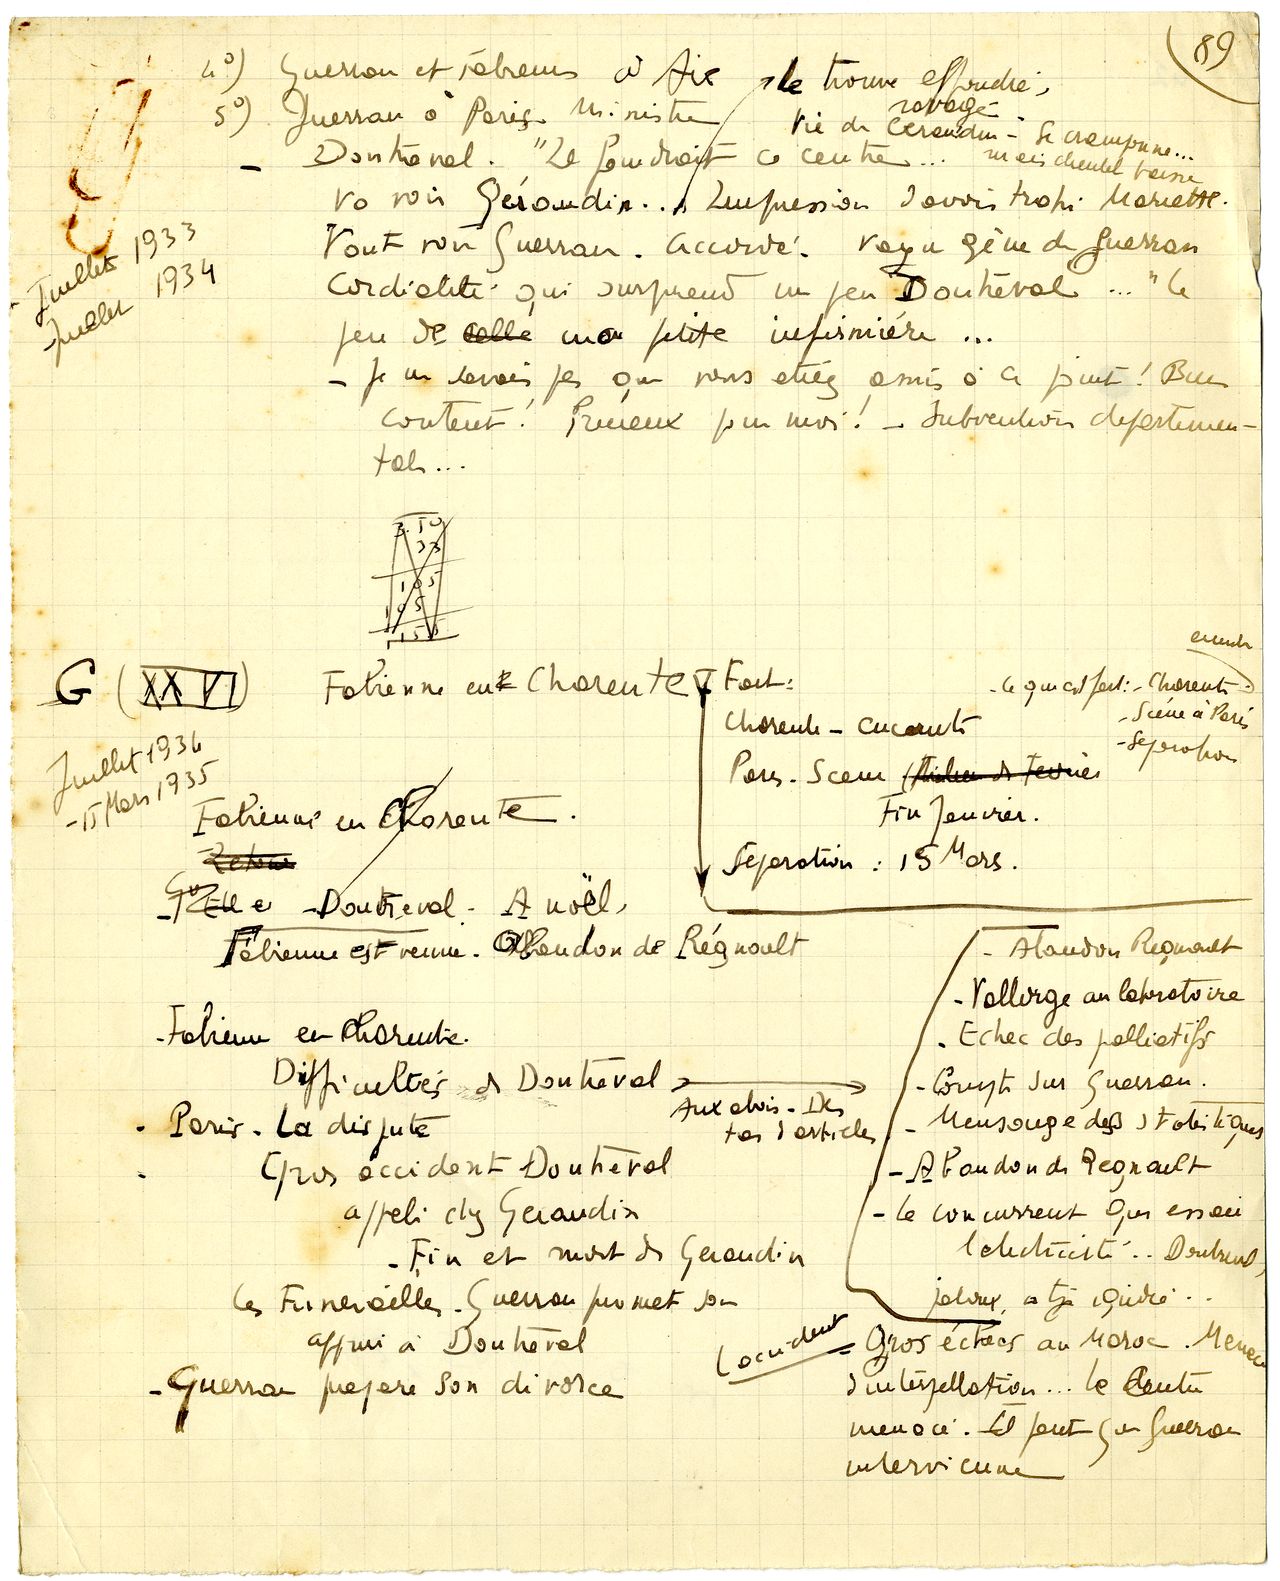 89
4°) Guerran et Fabienne à Aix le trouve effondré,
5°) Guerran à Paris. Ministre
ravagé
Vie de Géraudin - Se cramponne...
mais clientèle baisse
- Doutreval. "Il faudrait ce centre...
va voir Géraudin... Impression d'avoir trahi Mariette.
Vont voir Guerran. Accordé. Vague gêne de Guerran
Cordialité qui surprend un peu Doutreval ... "le
feu de celle ma petite infirmière ...
- Je ne savais pas que vous étiez amis à ce point! Bien
content! Précieux pour moi! - Subvention départemen-
tale...
Juillet 1933
Juillet 1934
3.50
33
105
105
1150
G (XXVI) Fabienne en Charente
Juillet 1934
- 15 Mars 1935
Fort:
Charente - enceinte
Paris. Scène
Fin Janvier.
Séparation : 15 Mars.
- Ce qui est fort: - Charente
- Scène à Paris
- Séparation
Fabienne en Charente.
Retour
- Elle - Doutreval - A noël,
Fabienne est venue. Abandon de Régnoult
- Fabienne en Charente.
Difficultés de Doutreval
Aux abois -
d'articles
. Paris - La dispute
. Gros accident Doutreval
appelé chez Geraudin
- Fin et mort de Geraudin
Les Funérailles. Guerran promet son
appui à Doutreval
- Guerran prépare son divorce
- Abandon Regnoult
- Vallorge au laboratoire
- Echec des palliatifs
- Compte sur Guerran.
- Mensonge des statistiques
- Abandon de Regnoult
- Le concurrent qui essaie
l'électricité... Doutreval,
jaloux,
L'accident
- Gros échecs au Maroc. Menace
d'interpellation... Le Centre
menacé. Il faut que Guerran
intervienne